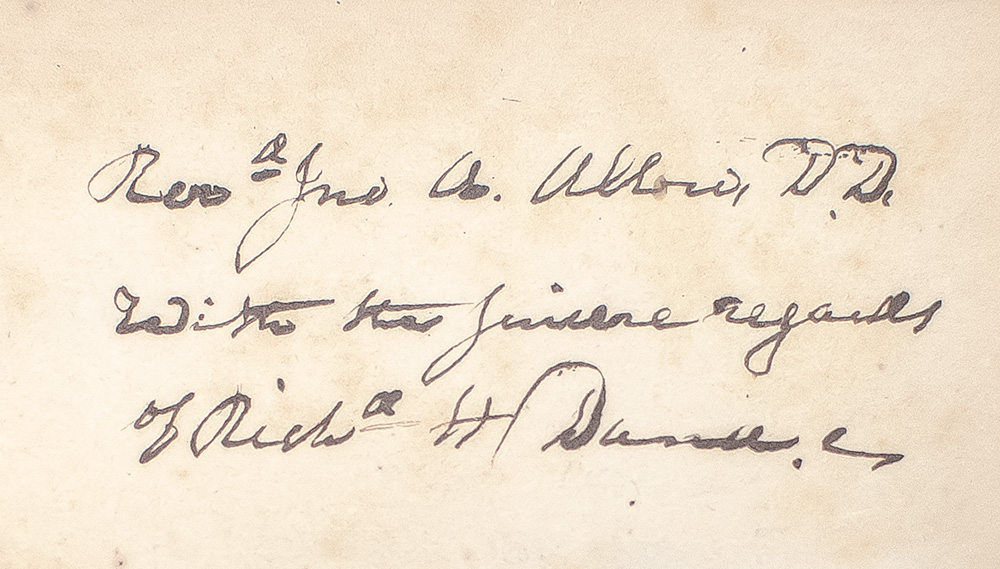 Revd Jno A. Albro, D.D.
With the sincere regards
of Richd H Dana.